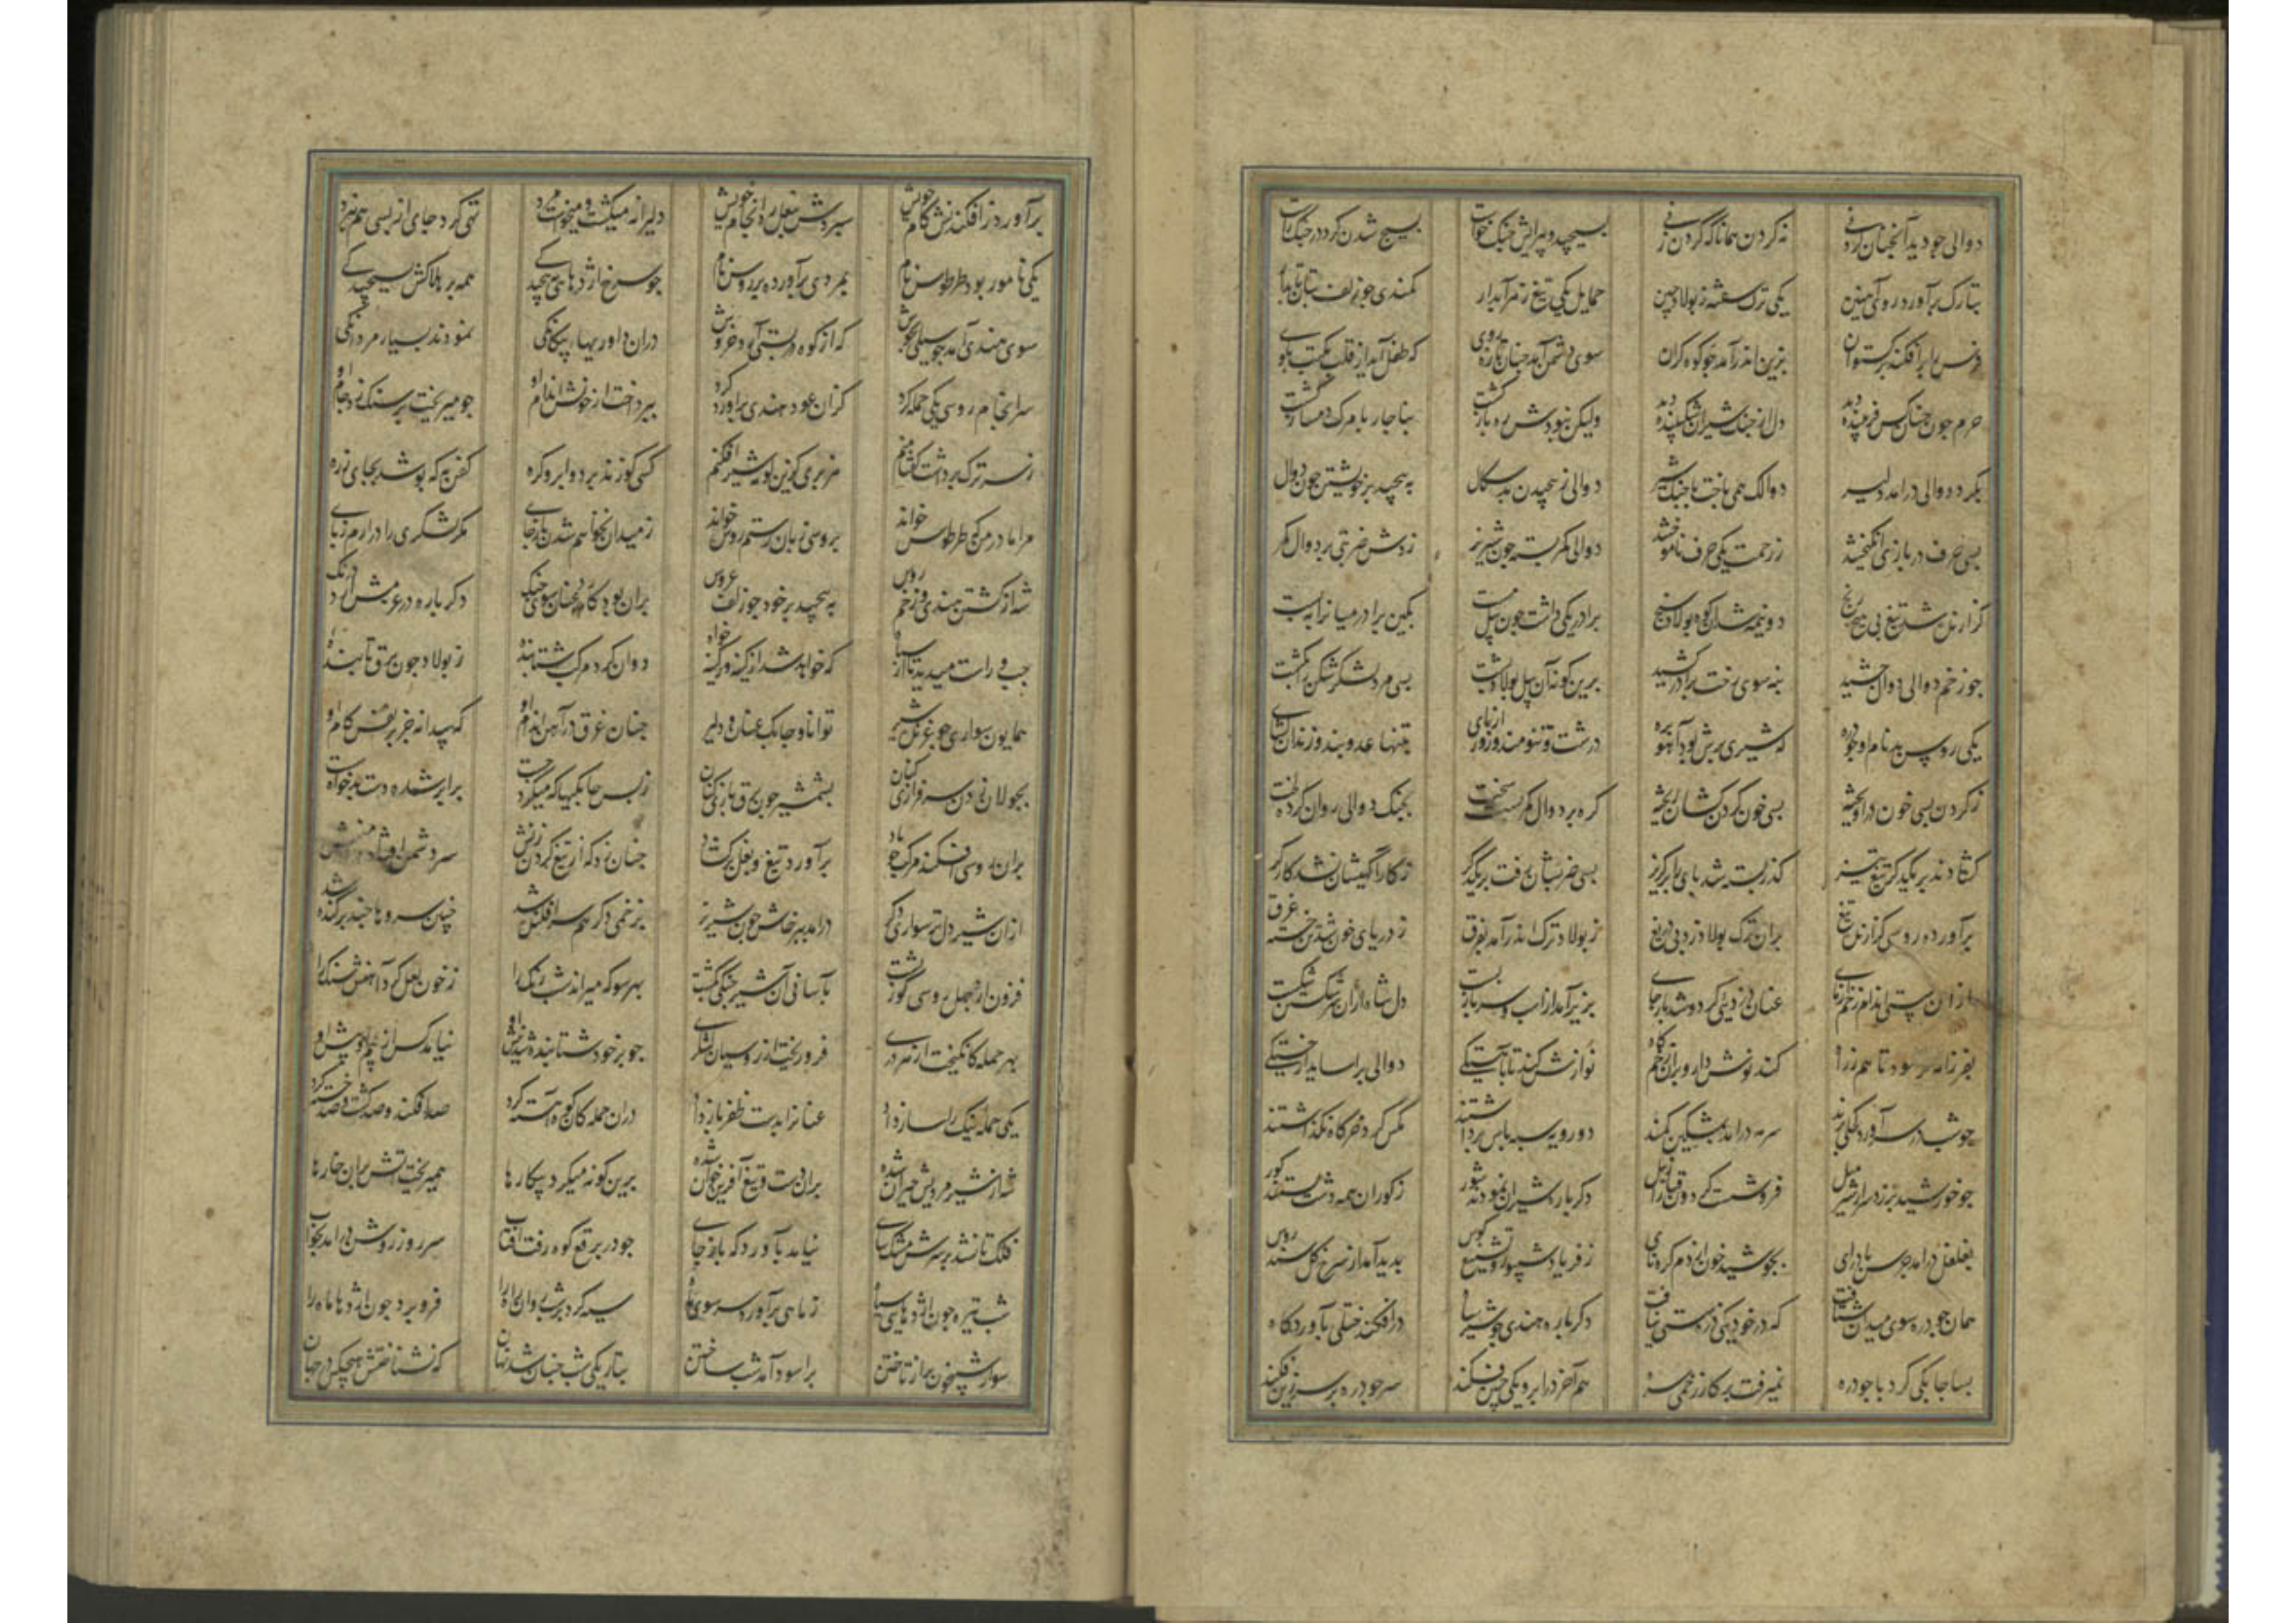 دوالی جو دید آنچنان کردنی نه کردن همانا که کردن زنی بسیچید و پیرایش جنک خواست بسیج شدن کرد در جنک راست
بتارک برآورد روی مهین یکی ترک سفته ز پولاد چین حمایل یکی تیغ زهر آبدار کمندی جو زلف بتان تابدار
فرس را برافکند برکستوان بزین اندر آمد جو کوه کران سوی دشمن آمد جنان تازه روی که طفل آید از قلب مکتب بکوی
جرم جون جنان کس فریبنده دید دل از جنک شیران شکیبنده دید ولیکن نبودش ره بازکشت بناچار با مرک دمساز کشت
بکرد دوالی درامد دلیر دوالک همی باخت با جنک شیر دوالی ز پیچیدن بدسکال به پیچید بر خویشتن جون دوال
بسی حرف در بازی انکیختند ز زحمت یکی حرف دوالی کمر بسته جون شیر نر زدش ضربتی بر دوال کمر
کزارنده شد تیغ بی هیج رنج دو نیمه شد آن کوه پولاد سنج برادر یکی داشت جون پیل مست بکین برادر میانرا ببست
جو زخم دوالی دوالش جشید بنه سوی رخت برادر کشید برین کونه آن پیل پولاد پشت بسی مرد لشکرشکن را بکشت
یکی روس بد نام او جودره که شیری برش بود آهو بره درشت و تنومند و زورازمای بتنها عدو بند و
ز کردن بسی خون دراویخته بسی خون کردن کشان ریخته کره بر دوال کمر سخت بست بجنک دوالی روان کرد
کشادند بر یکدکر تیغ تیز کذر بسته شد پای را بر کریز بسی ضربشان رفت بر یکدکر ز کار اکهیشان نشد کارکر
برآورده روسی کزارنده تیغ بران ترک پولاد زد بی دریغ ز پولاد ترک اندر آمد بفرق ز دریای خون شد تن خسته غرق
ازان سستی اندام زخم ازمای عنان دزدیی کرد و شد باز جای بزیر آمد از اسب و سر باز بست دل شاه ازان سرشکستن شکست
بفرزانه فرمود تا هم ز راه کند نوش دارو بران زخمکاه نوازش کند تا بآهستکی دوالی براساید از خستکی
جو شب در سر آورد کحلی پرند سر مه درامد بمشکین کمند دو رویه سپه پاس برداشتند مکس کرد خرکاه نکذاشتند
جو خورشید برزد سر از شیر میل فروشست کردون قبا را ز نیل دکر باره شیران نمودند شور ز کوران همه دشت بستند کور
بغلغل درامد جرس با درای بجوشید خون از دم کرنای ز فریاد شیپور و تشنیع کوس پدید آمد از سرخ کل سندروس
همان جودره سوی میدان شتافت که در خود یکی ذره سستی نیافت دکر باره هندی جو شیر سیاه درافکند ختلی بآوردکاه
بسا جابکی کرد با جودره نمیرفت بر کار زخمی سره هم آخر درابرو یکی چین فکند سر جودره بر سر زین فکند
برآورد زافکندنش کام خویش سپردش بنعل ره انجام خویش دلیرانه میکشت و میخواست مرد تهی کرد جای از بسی هم نبرد
یکی نامور بود طرطوس نام بمردی برآورده بر روس نام جو سرخ اژدهایی بپیچید کی همه بر هلاکش بسیجید کی
سوی هندی آمد جو سیلی بجوش که از کوه در پستی آرد خروش دران داوریها به بیکانکی نمودند بسیار مردانکی
سرانجام روسی یکی حمله کرد کزان عود هندی براورد کرد بپرداخت از خونش اندام او جو می ریخت بر سنک زد جام او
ز سر ترک برداشت کفتا منم هژبری کزین کونه شیر افکنم کسی کو ز ندبر دو ابرو کره کفن به که پوشد بجای زره
مرا مادر من که طرطوس خواند بروسی زبان رستم روس خواند ز میدان نخواهم شدن باز جای مکر لشکری را درارم ز پای
شه از کشتن هندی و زخم روس به پیچید بر خود جو زلف عروس بران بود کارد عنان سوی جنک دکر باره در عزمش آمد درنک
چپ و راست میدید تا از سپاه که خواهد شد از کینه ور کینه خواه دوان کرد مرکب شتابنده ز پولاد جون برق تابنده
همایون سواری جو غرنده شیر توانا و جابک عنان و دلیر جنان غرق در آهن اندام او که پیدا نه جز نقش کام او
بجولان زدن سرفرازی کنان بشمشیر جون برق بازی کنان ز بس جابکیها که میکرد جست برابر شده دست بدخواه سست
بران روسی افکند مرکب جو باد برآورد تیغ و بغل برکشاد جنان زد که از تیغ کردن زنش سر دشمن افتاد
ازان شیر دل تر سواری دکر درامد بپرخاش جون شیر نر بزخمی دکر هم سرافکنده شد چنین سروها چند برکنده شد
فزون از چهل روسی کوژ پشت بآسانی آن شیر جنکی بکشت بهر سو که میراند شبرنک را ز خون لعل کرد آهن و سنک را
بهر حمله کانکیخت از هر دری فرو ریخت از روسیان لشکری جو بر خود شتابنده شد خوی او نیامد کس از بیم در پیش او
یکی حمله نیک را ساز داد عنانرا بدست ظفر باز داد دران حمله کان کوه آهسته کرد صد افکند و صد کشت و صد خسته کرد
شه از شیرمردیش حیران شده بران دست و تیغ آفرین خوان شده برین کونه میکرد پیکارها همیریخت آتش بران خارها
فلک تا نشد بر سرش مشک سای نیامد ز آوردکه باز جای جو در برقع کوه رفت آفتاب سر روز روشن درامد بخواب
شب تیره جون اژدهای سیاه ز ماهی برآورد سر سوی ماه سیه کرد بر شب روان راه را فرو برد جون اژدها ماه را
سوار شبیخون بر از تاختن براسود و آمد شب ساختن بتاریکی شب جنان شد نهان که نشناختش هیچکس در جهان